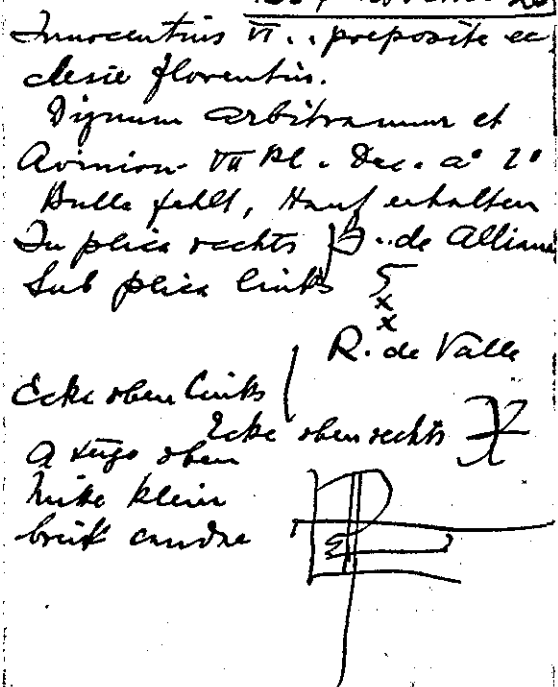 Innocentius VI . . preposito ec
clesie florentin.
Dignum arbitramur et
Avinion. VII Kl. Dec. a° 2°
Bulle fehlt, Hanf erhalten
In plica rechts J. de Alliam
Sub plica links 5
x
x
R. de Valle
Ecke oben links
Ecke oben rechts
A tergo oben
Mitte klein
breit